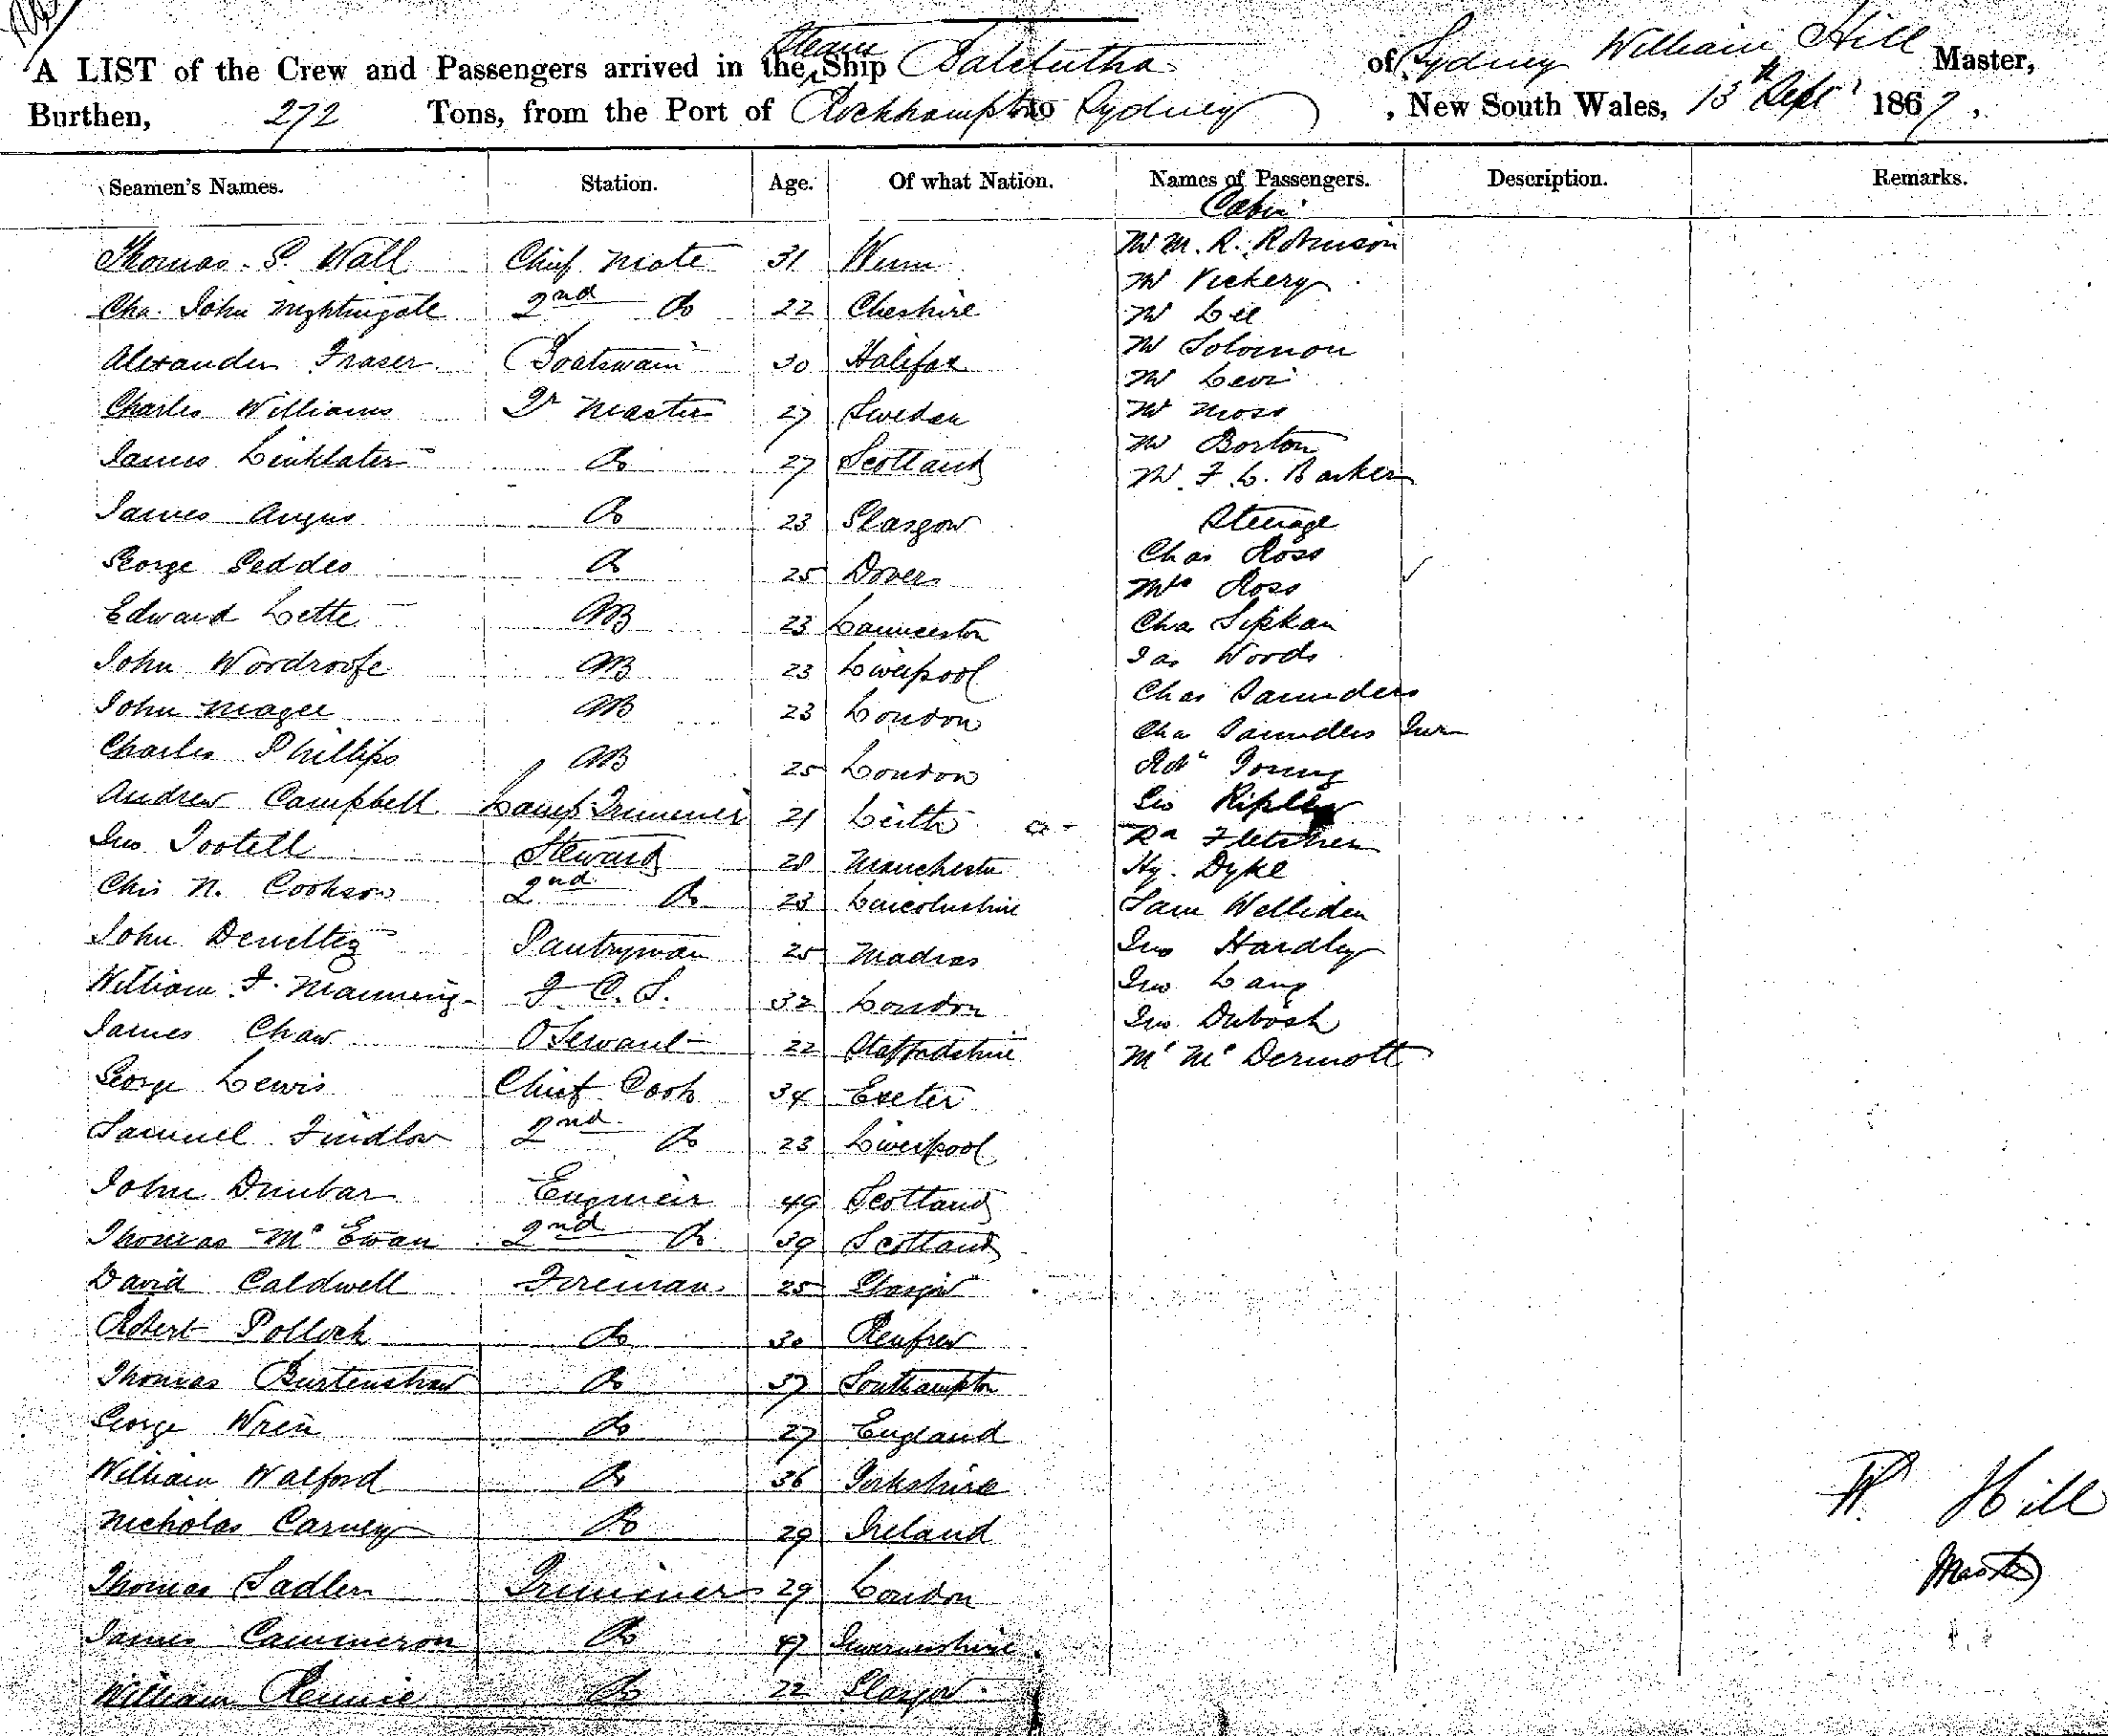 A LIST of the Crew and Passengers arrived in the Steam Ship Balclutha of Sydney William Hill Master,
Burthen, 272 Tons, from the Port of Rockhampton to Sydney, New South Wales, 13th Sept 1867,
Seamen's Names. Station. Age. Of what Nation. Names of Passengers. Description. Remarks.
Cabin
Thomas S. Wall Chief Mate 31 Mr M. R. Robinson
Mr Vickery
Cha. John Nightingale 2nd Do 22 Cheshire Mr Lee
Alexander Fraser Boatswain 30 Halifax Mr Solomon
Mr Levi
Charles Williams Qr Master 27 Sweden Mr Moss
Mr Borton
James Linklater Do 27 Scotland Mr F. L. Barker
James Angus Do 23 Glasgow Steerage
Chas Ross
George Geddes Do 25 Dover Mrs Ross
Edward Lette AB 23 Launceston Cha
John Wordroofe AB 23 Liverpool Jas Woods
John Magee AB 23 London Chas Saunders
Cha Saunders Junr
Charles Phillips AB 25 London Robt Young
Andrew Campbell Lamp Trimmer 21 Leith Geo Ripley
Fletcher
Jno Tootell Steward 28 Manchester Hy. Dyke
Chis N. Cookson 2nd Do 23 Lincolnshire Sam Welliden
John Pantryman 25 Madras Jno Hardley
William F. Manning F. C. S. 32 London Jno Lang
James Chaw Servant 22 Staffordshire Jno Dubosh
Mr McDermott
George Lewis Chief Cook 34 Exeter
Samuel Findlow 2nd Do 23 Liverpool
John Dunbar Engineer 49 Scotland
Thomas McEwan 2nd Do 39 Scotland
David Caldwell Fireman 25 Glasgow
Robert Pollock Do 30 Renfrew
Thomas Burtenshaw Do 37 Southampton
George Wren Do 27 England
William Walford Do 36 Yorkshire
Nicholas Carney Do 29 Ireland
W. Hill
Master
Thomas Sadler Trimmer 29 London
James Cammeron Do 47 Invernesshire
William Rennie Do 22 Glasgow